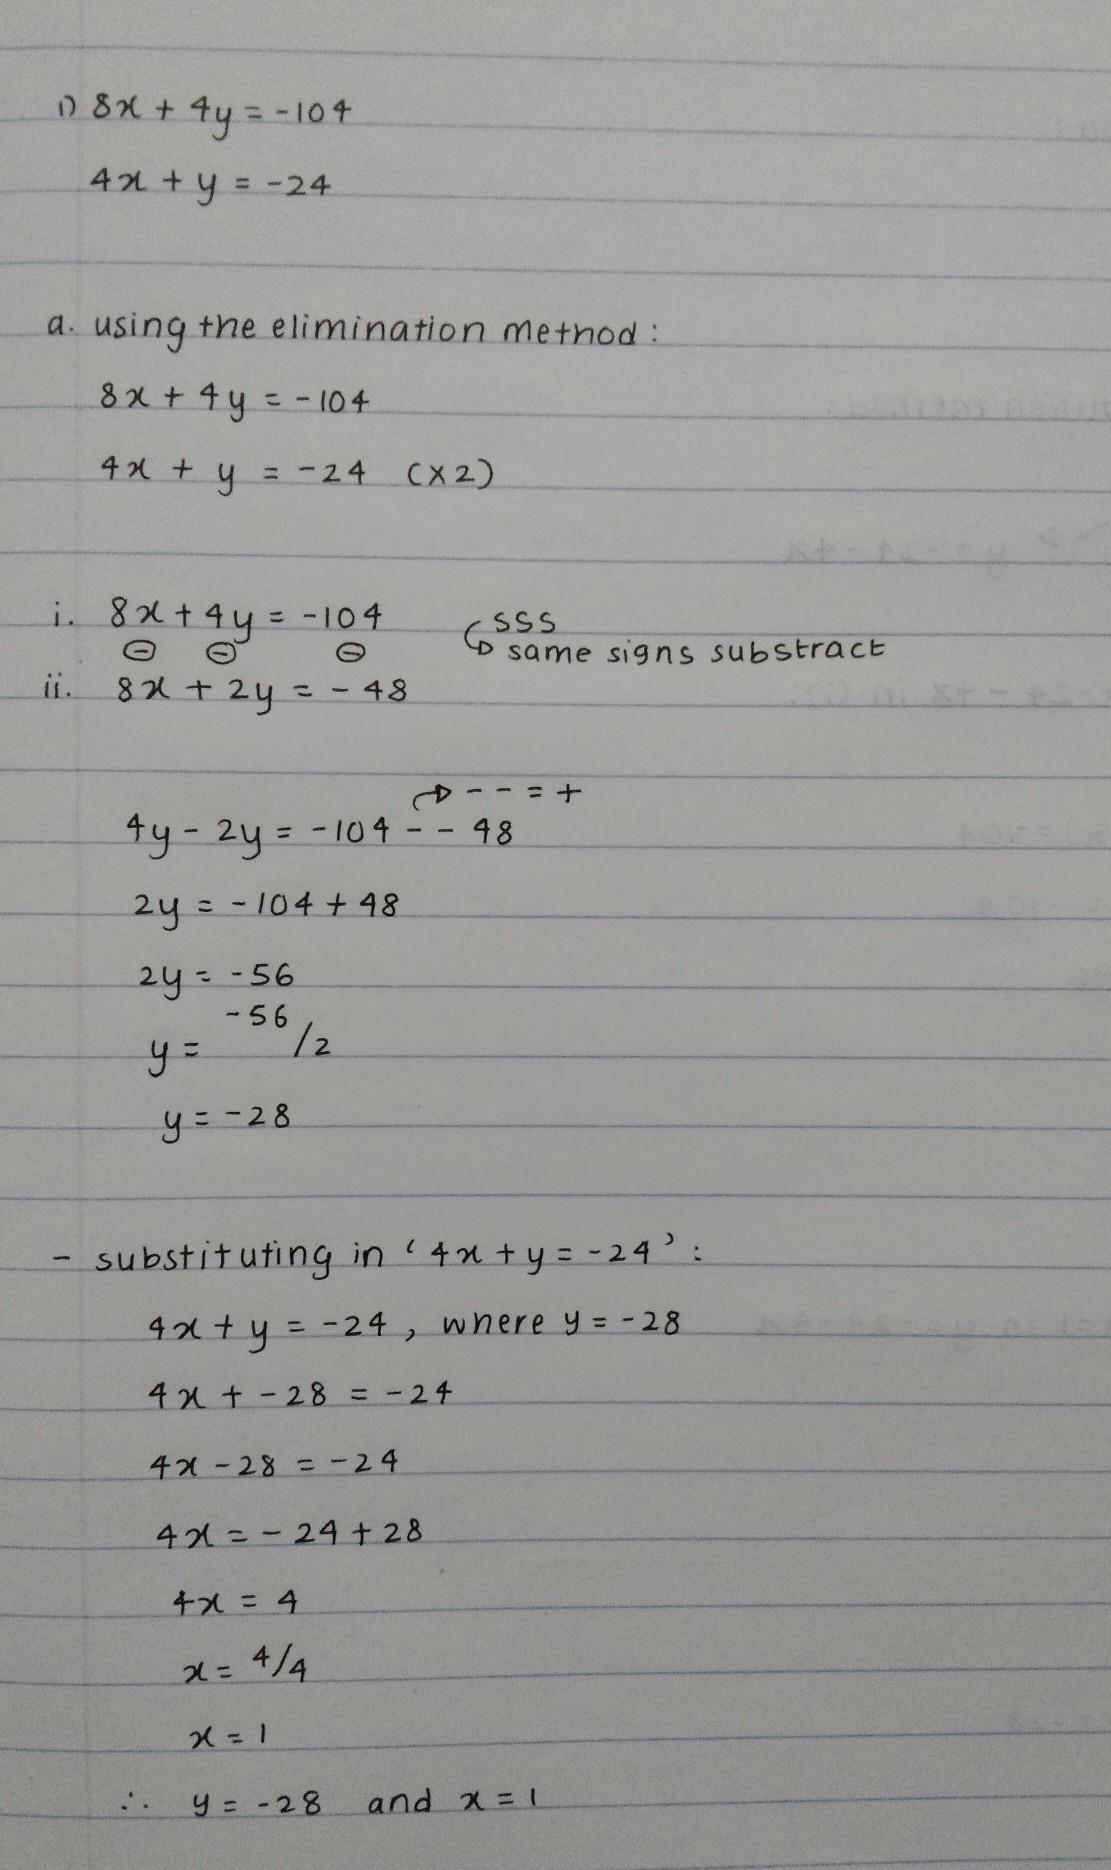 1) 8x + 4y = -104
4x + y = -24
a. using the elimination method :
8x + 4y = -104
4x + y = -24 (x2)
i. 8x + 4y = -104 ↳ SSS
⊖ ⊖ ⊖ ↳ same signs substract
ii. 8x + 2y = - 48
↱ - - = +
4y - 2y = -104 - - 48
2y = -104 + 48
2y = -56
y = -56/2
y = -28
- substituting in ‘4x + y = -24’ :
4x + y = -24 , where y = -28
4x + -28 = -24
4x - 28 = -24
4x = - 24 + 28
4x = 4
x = 4/4
x = 1
∴ y = -28 and x = 1